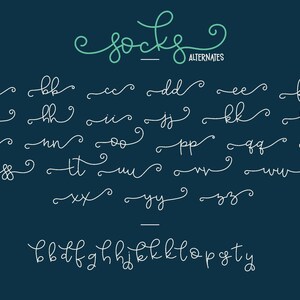 socks
ALTERNATES
bb cc dd ee
hh ii jj kk
nn oo pp qq
ss tt uu vv ww
xx yy zz
bbdfghhjkkklopqsty